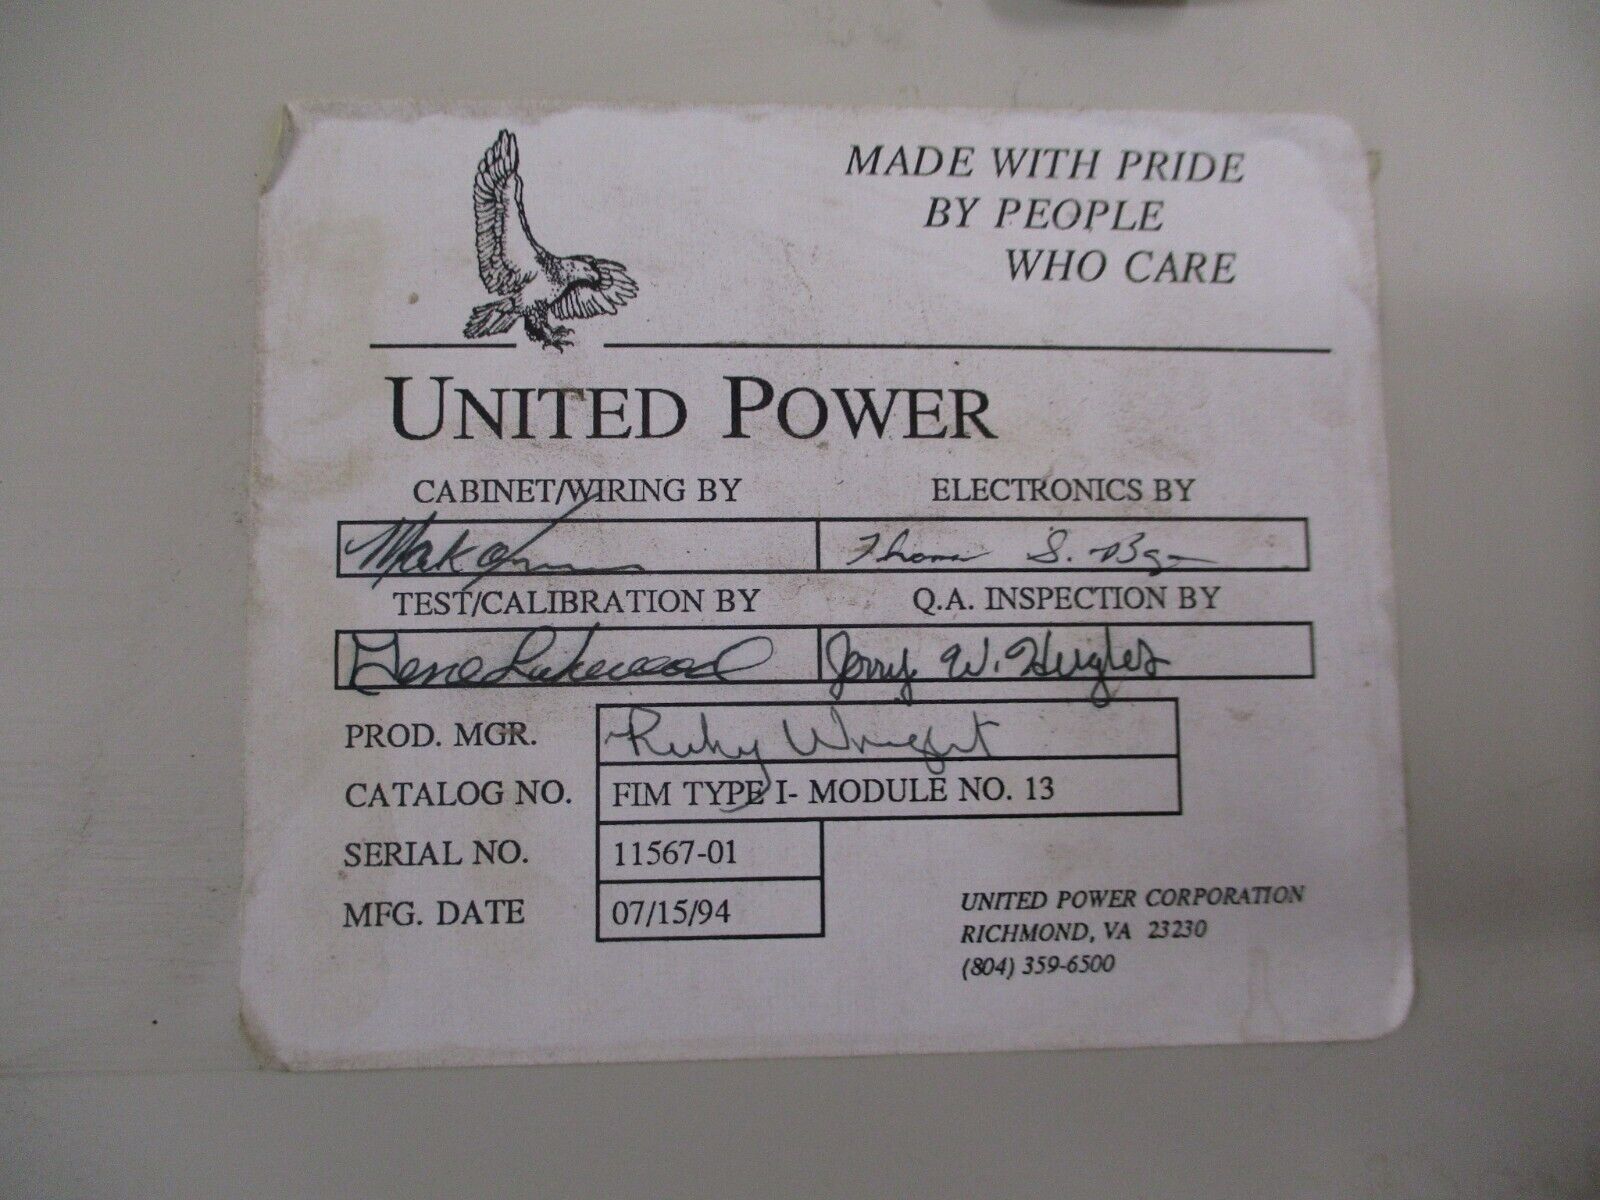 MADE WITH PRIDE
BY PEOPLE
WHO CARE
UNITED POWER
CABINET/WIRING BY ELECTRONICS BY
Mark S.
TEST/CALIBRATION BY Q.A. INSPECTION BY
Gene Jerry W. Hughes
PROD. MGR. Ricky Wright
CATALOG NO. FIM TYPE I- MODULE NO. 13
SERIAL NO. 11567-01
MFG. DATE 07/15/94
UNITED POWER CORPORATION
RICHMOND, VA 23230
(804) 359-6500